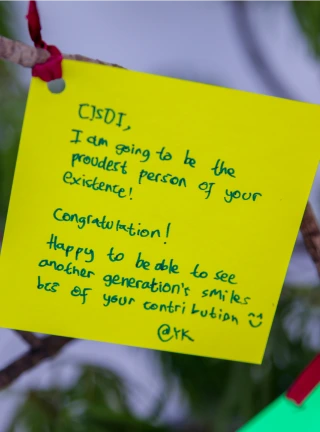 CJSDI,
I am going to be the
proudest person of your
existence!
Congratulation!
Happy to be able to see
another generation's smiles
bcz of your contribution
@YK